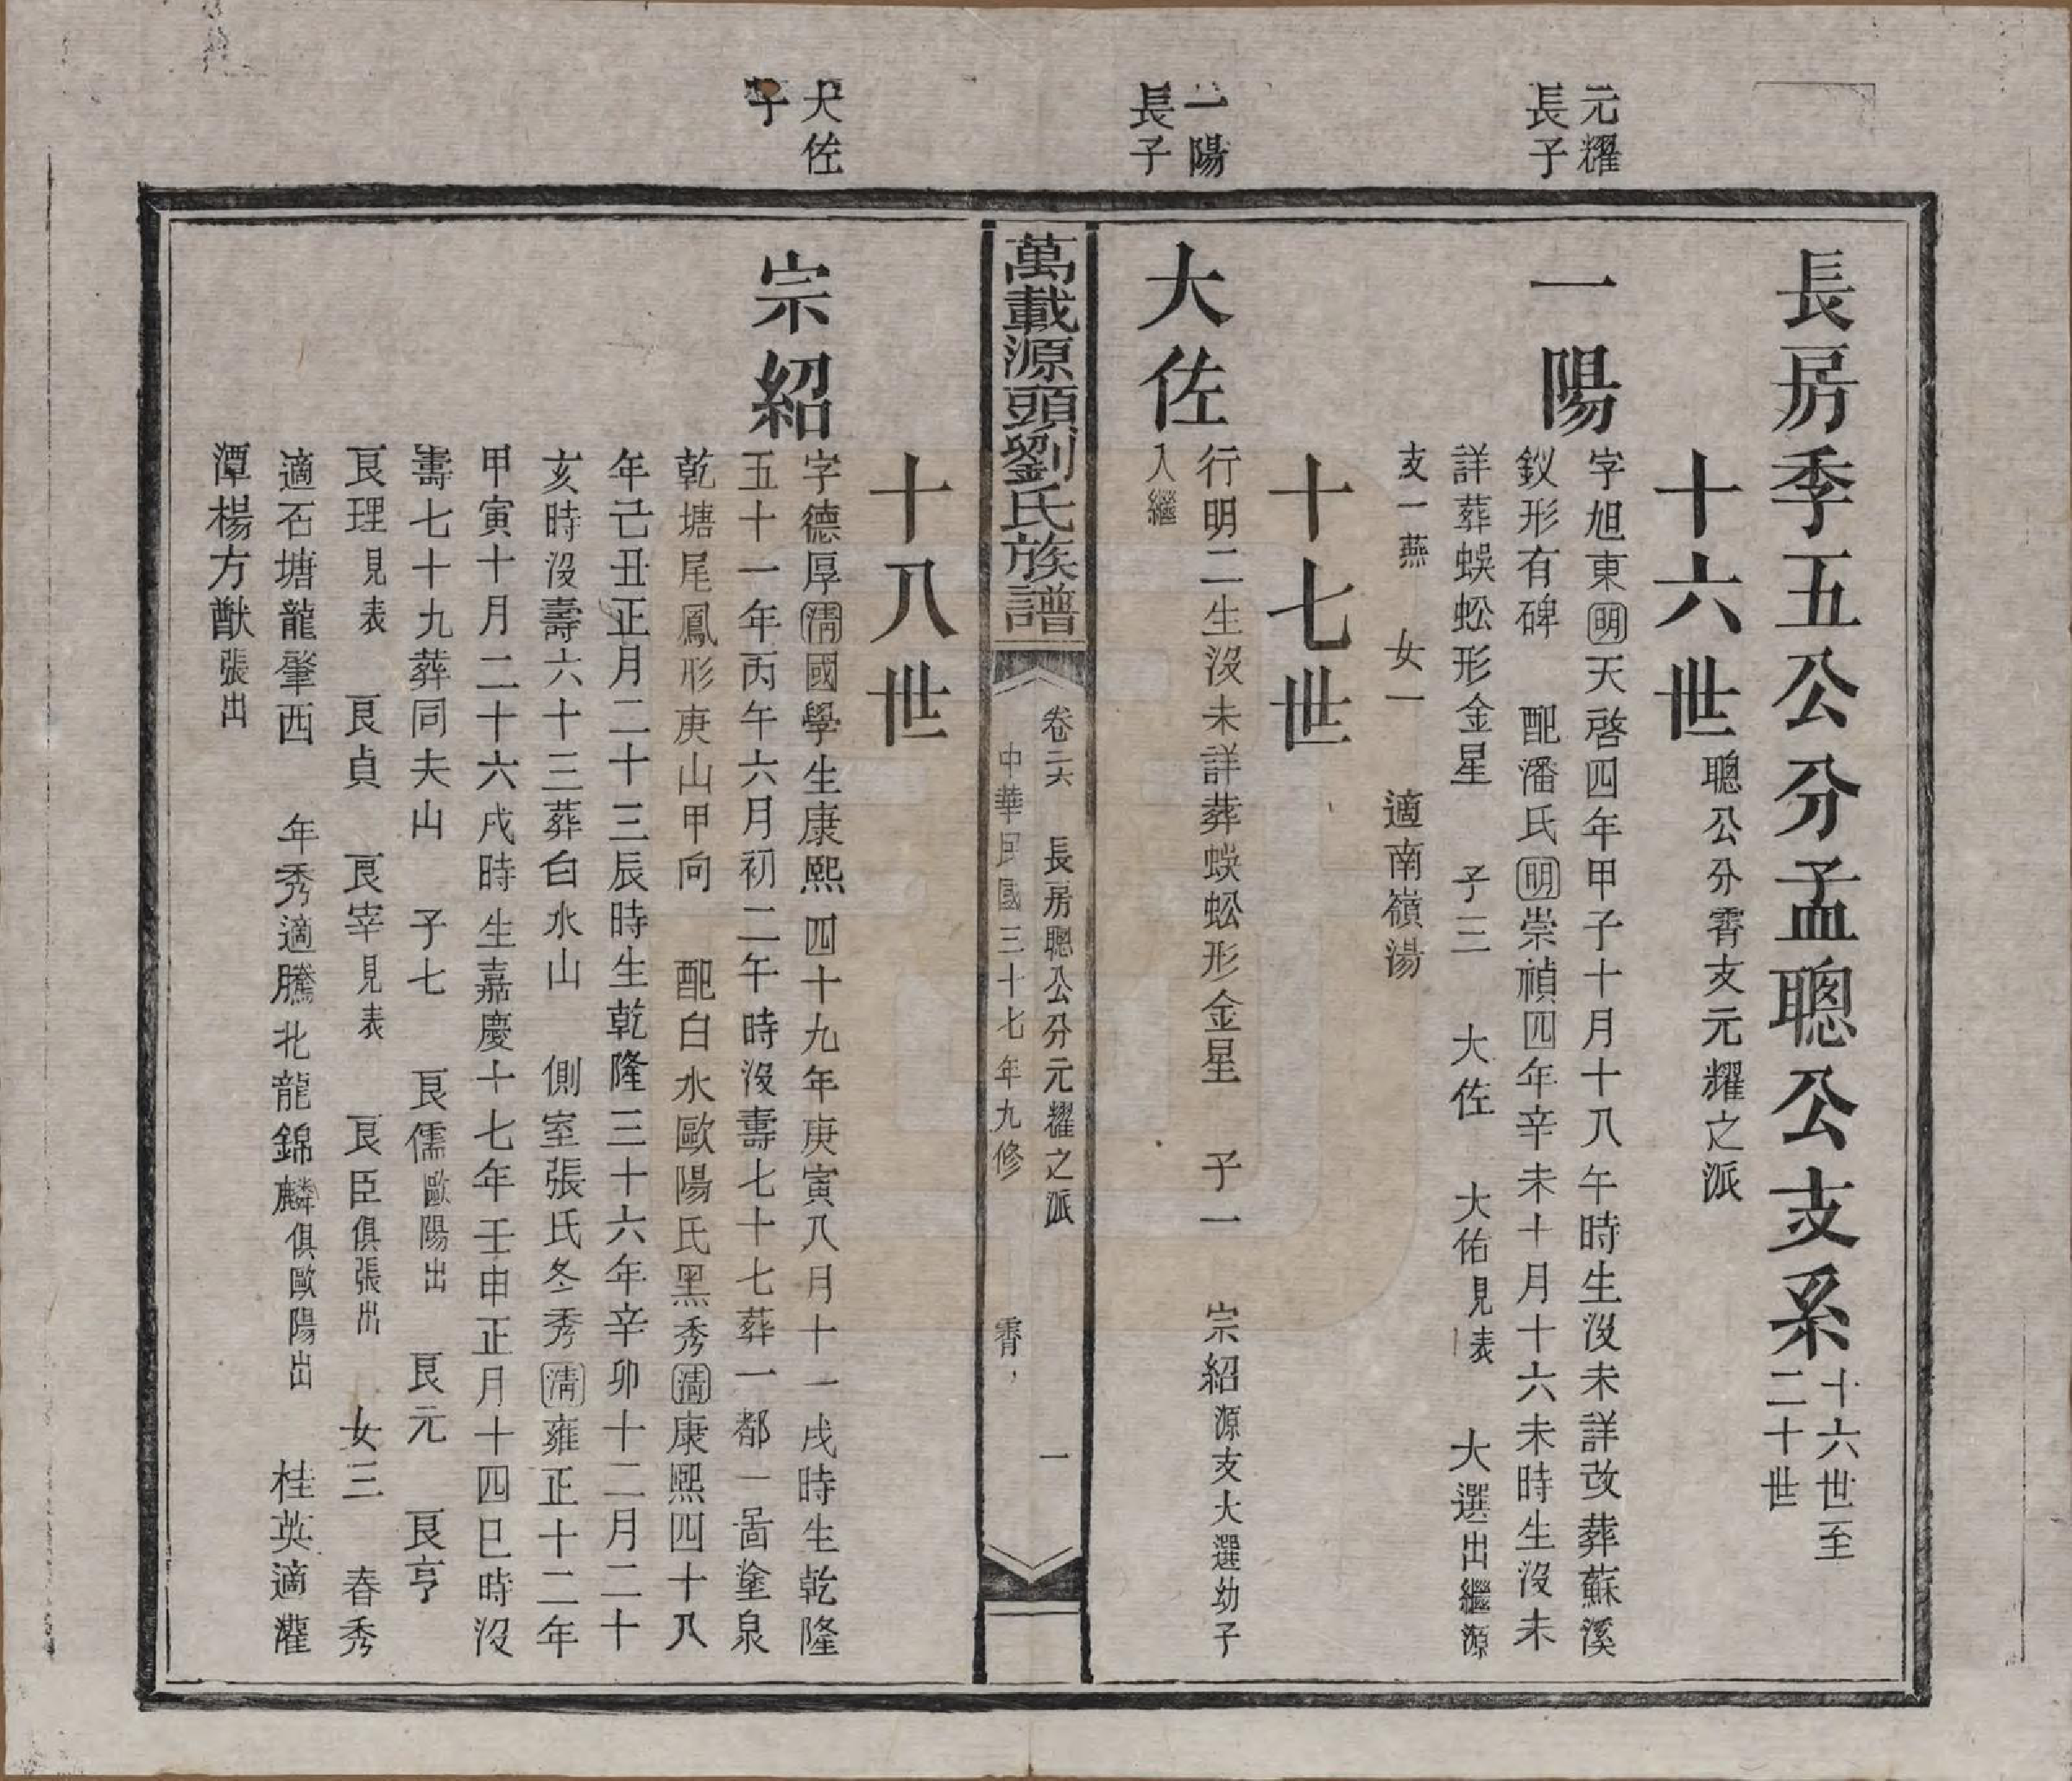 長房季五公分孟聰公支系十六世至
二十世
十六世聰公分霄支元耀之派
元耀
長子
一陽
字旭東明天啓四年甲子十月十八午時生沒未詳改葬蘇溪
釵形有碑 配潘氏明崇禎四年辛未十月十六未時生沒未
詳葬蜈蚣形金星 子三 大佐 大佑見表 大選出繼源
支一燕 女一 適南嶺湯
十七世
一陽
長子
大佐
行明二生沒未詳葬蜈蚣形金星 子一 宗紹源支大選幼子
入繼
萬載源頭劉氏族譜
卷二六 長房聰公分元耀之派 一
中華民國三十七年九修 霄
十八世
大佐
子
宗紹
字德厚清國學生康熙四十九年庚寅八月十一戌時生乾隆
五十一年丙午六月初二午時沒壽七十七葬一都一啚塗泉
乾塘尾鳳形庚山甲向 配白水歐陽氏黑秀清康熙四十八
年己丑正月二十三辰時生乾隆三十六年辛卯十二月二十
亥時沒壽六十三葬白水山 側室張氏冬秀清雍正十二年
甲寅十月二十六戌時生嘉慶十七年壬申正月十四巳時沒
壽七十九葬同夫山 子七 良儒歐陽出 良元 良亨
良理見表 良貞 良宰見表 良臣俱張出 女三 春秀
適石塘龍肇西 年秀適騰北龍錦麟俱歐陽出 桂英適灌
潭楊方猷張出